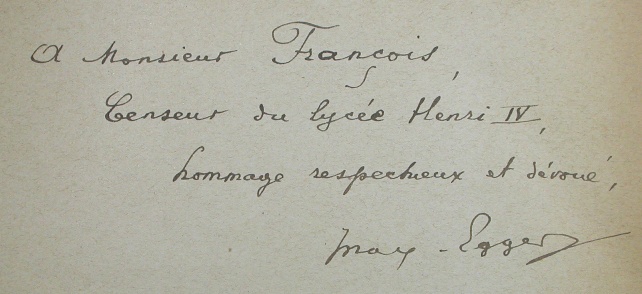 A Monsieur François,
Censeur du lycée Henri IV,
hommage respectueux et dévoué,
Max Egger